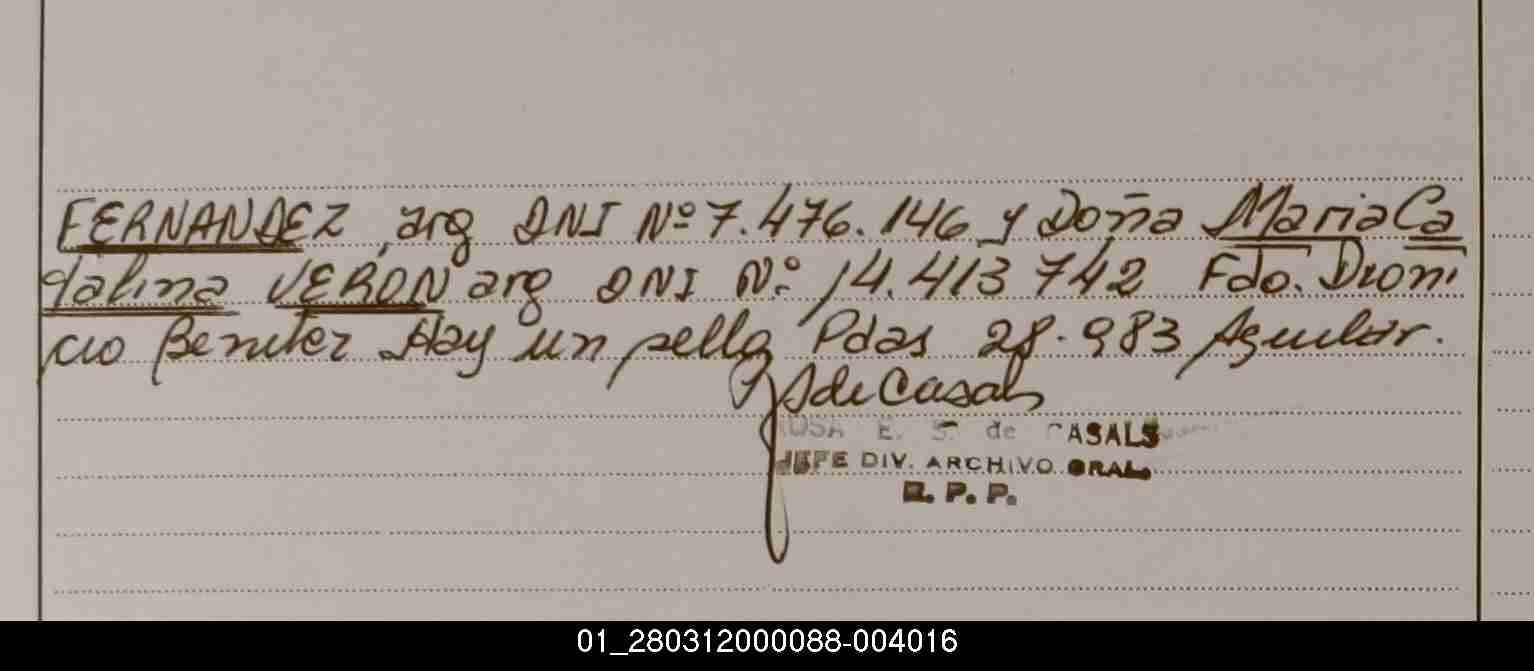 FERNANDEZ, arg DNI Nº 7.476.146 y Doña Maria Ca
talina VERON arg DNI Nº 14.413 742 Fdo. Dioni
cio Benitez Hay un sello Pdas 28.983 Aguilar.
S de Casals
ROSA E. S. de CASALS
JEFE DIV. ARCHIVO GRAL.
R. P. P.
01_280312000088-004016